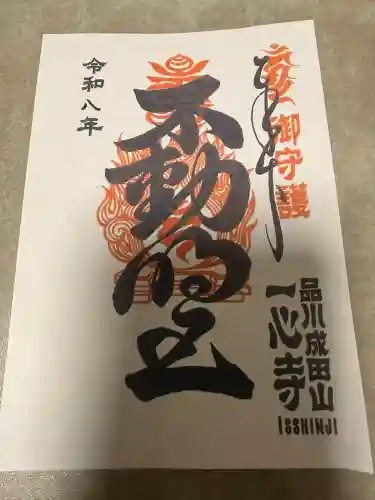 奉拝
御守護
品川成田山
一心寺
ISSHINJI
不動明王
令和八年